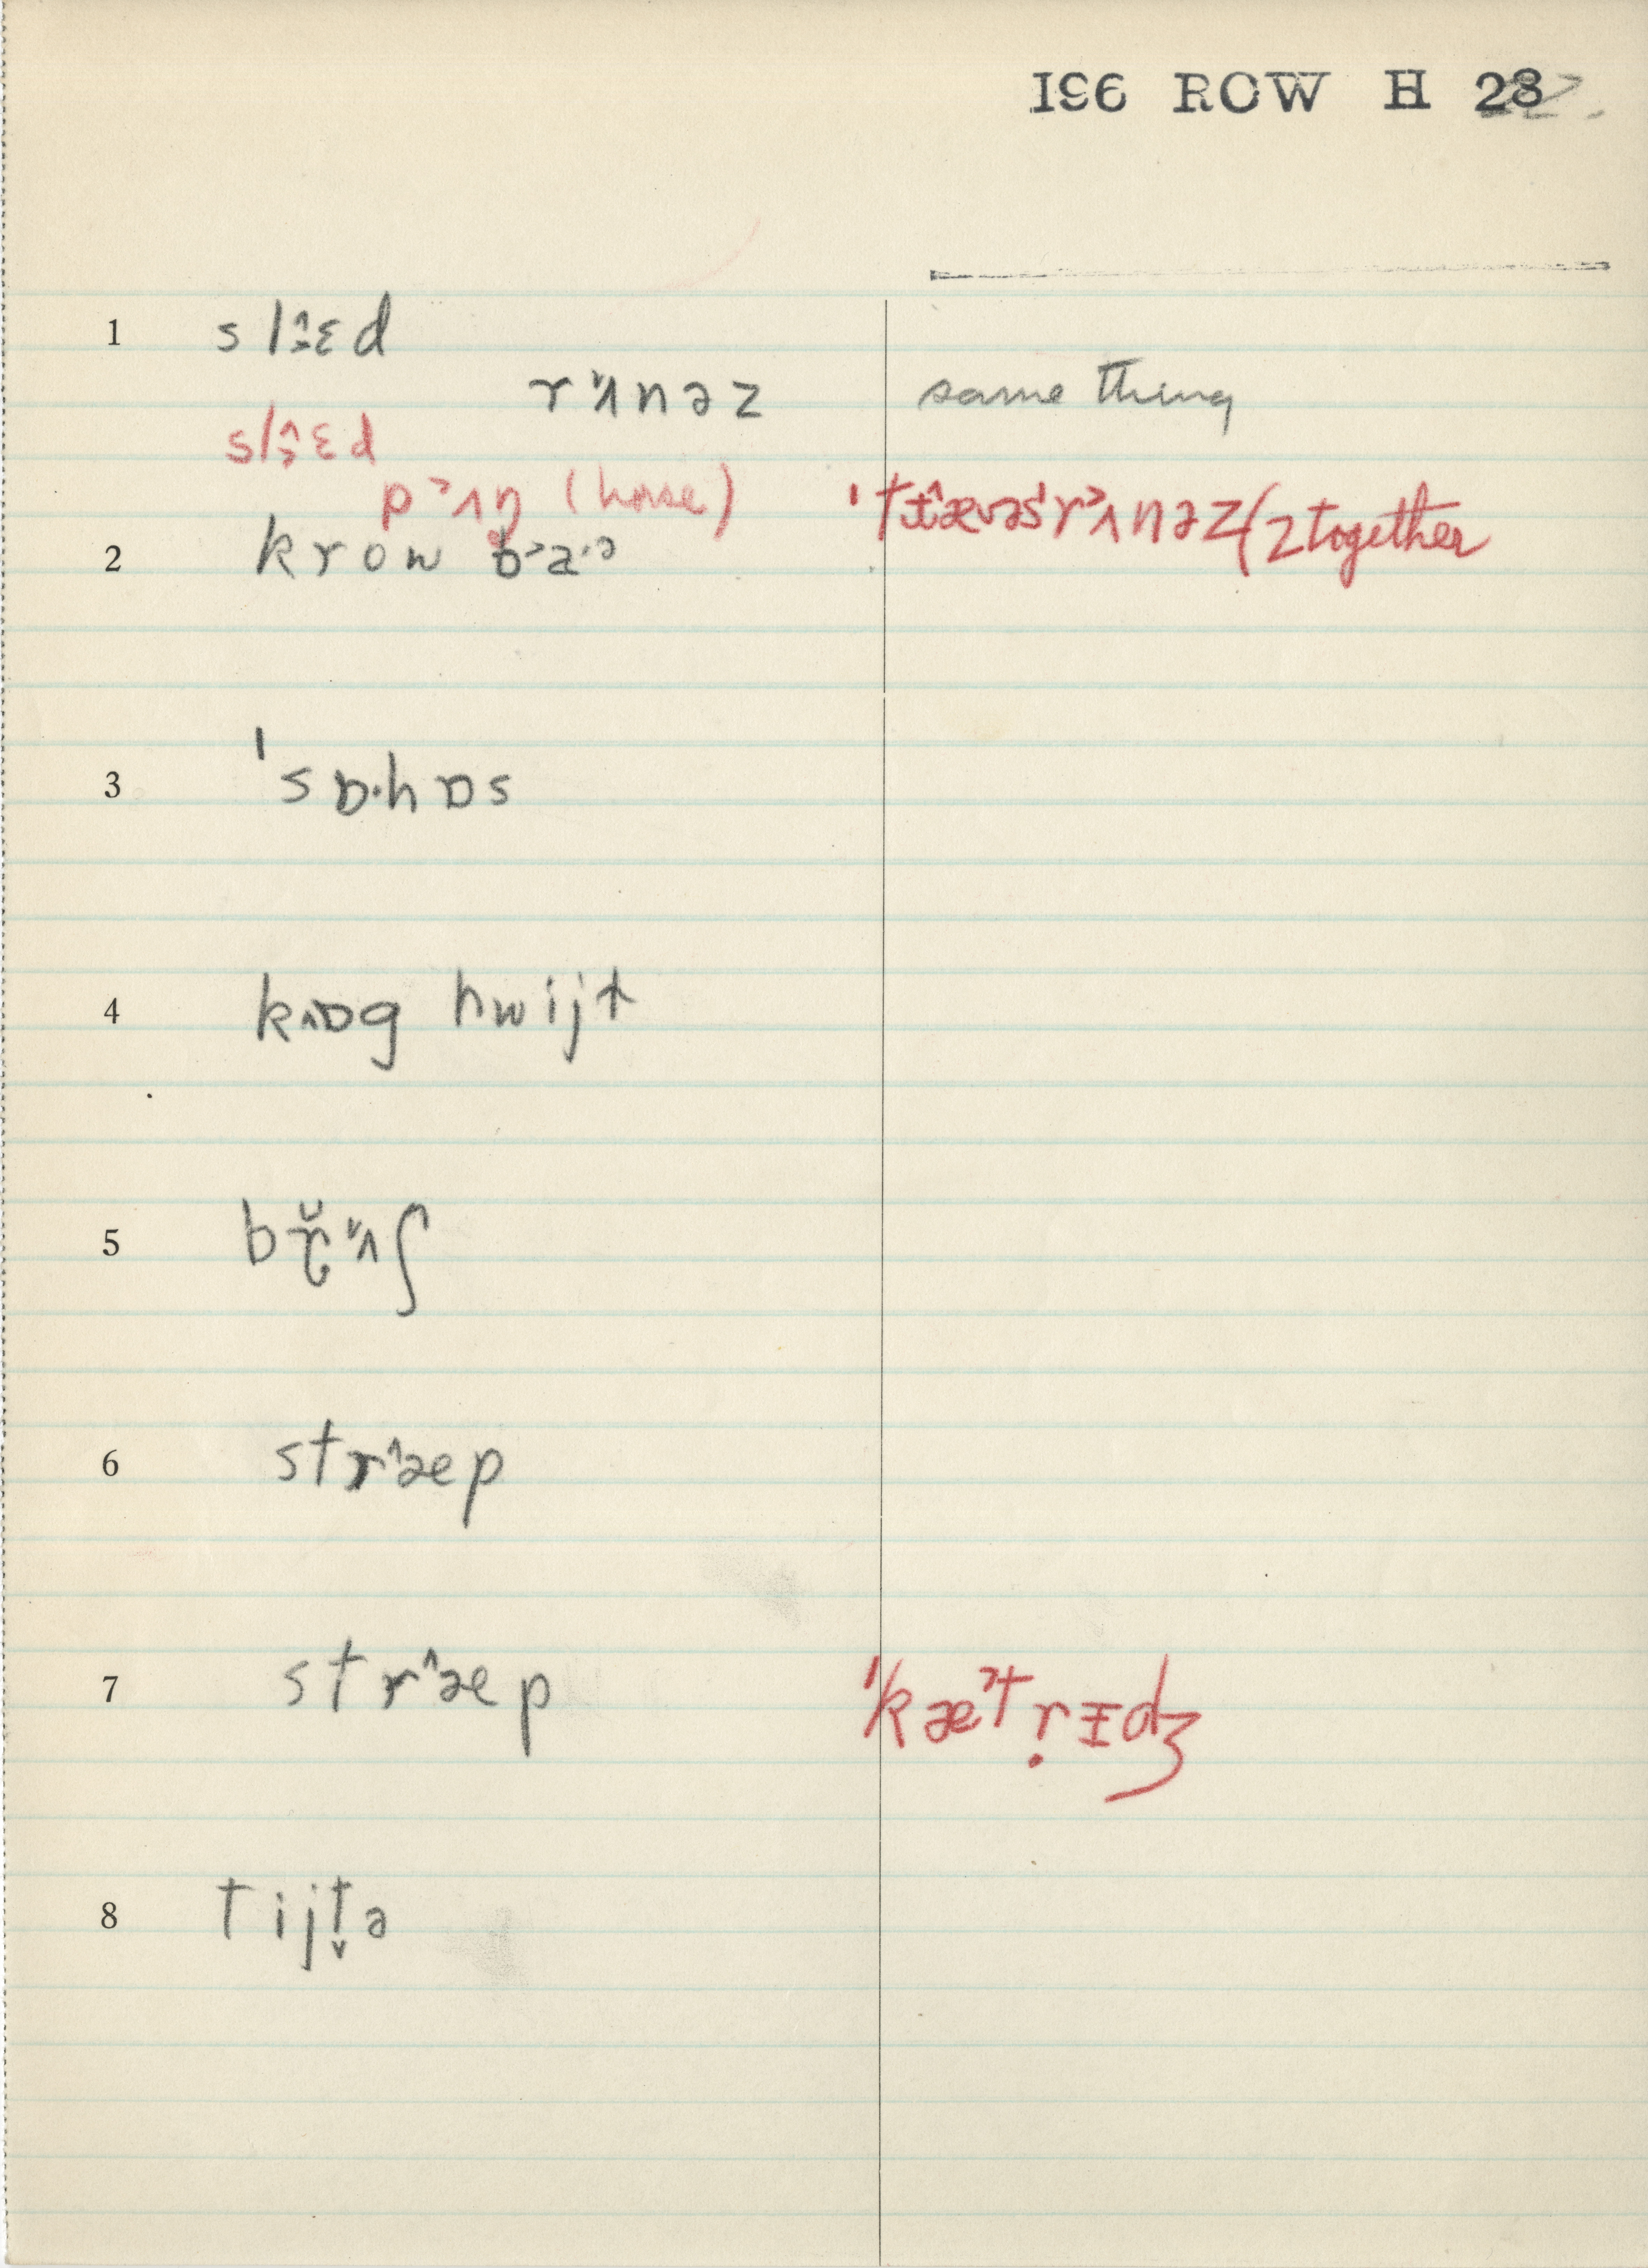 196 ROW H 28
1 slɛd
rʌnəz same thing
slɛd
pʌŋ (horse)
2 krow ba·ɔ 'træ̂vəs rʌnəz (2 together
3 'sɒ·hɒs
4 kɒg hwijt
5 brʌʃ
6 stræp
7 stræp 'kætrɪdʒ
8 tijt̬ə